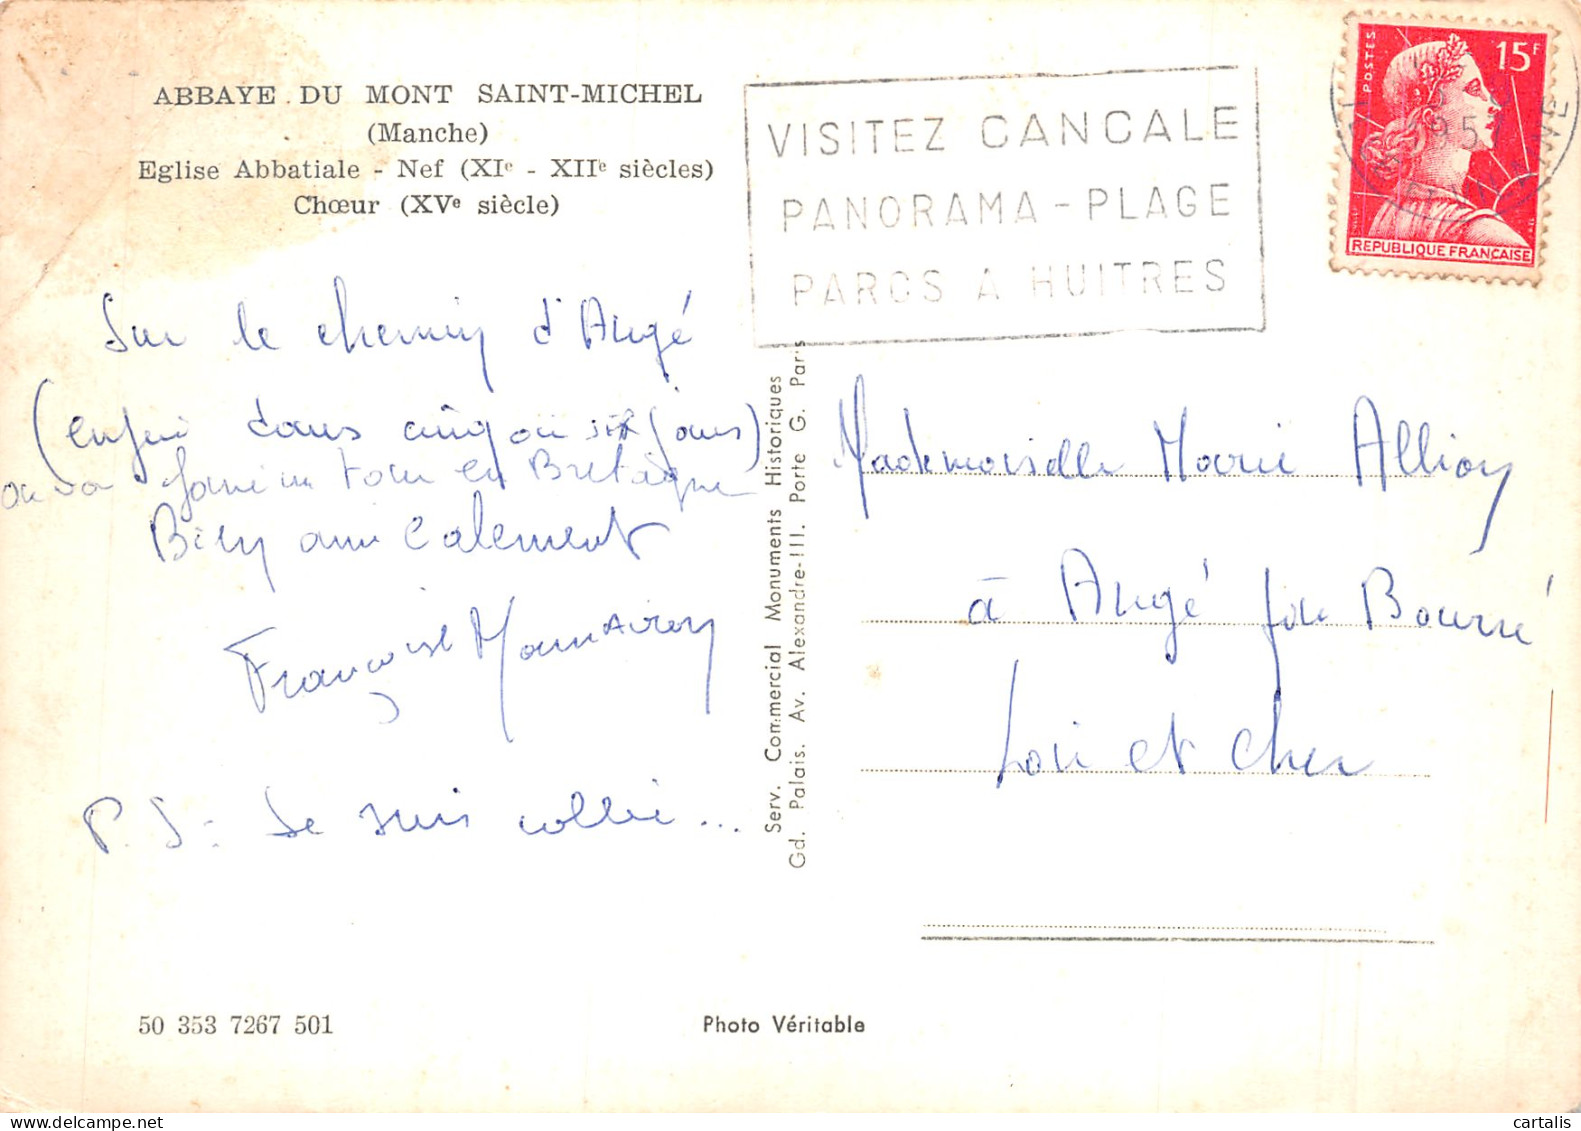 ABBAYE DU MONT SAINT-MICHEL
(Manche)
Eglise Abbatiale - Nef (XIe - XIIe siècles)
Chœur (XVe siècle)
VISITEZ CANCALE
PANORAMA - PLAGE
PARCS A HUITRES
POSTES
15F
REPUBLIQUE FRANÇAISE
Sur le chemin d'Angé
(enfin dans cinq ou six jours)
on va faire un tour en Bretagne
Bien amicalement
Françoise
P.S: Je suis collée...
Serv. Commercial Monuments Historiques
Gd. Palais. Av. Alexandre-III. Porte G. Paris
Mademoiselle Marie Allion
à Angé par Bourré
Loir et Cher
50 353 7267 501
Photo Véritable
cartalis